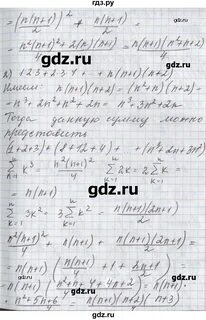 гдз.ру
= (n(n+1)/2)² + n(n+1)/2 =
= n²(n+1)² + 2(n)(n+1)/4 = n(n+1)(n²+n+2)/4
2) 1·2·3 + 2·3·4 + ... + n(n+1)(n+2)
Имеем: n(n+1)(n+2) = (n²+n)(n+2) =
= n³ + 2n² + n² + 2n = n³ + 3n² + 2n
Тогда данную сумму можно
представить
(1+2+3) + (8+12+4) + ... + (n³+2n+3n²)
∑ k³ = n²(n+1)²/4 ∑ 2k = 2∑ k =
= n(n+1)
∑ 3k² = 3∑ k² = n(n+1)(2n+1)/2
n²(n+1)²/4 + n(n+1) + n(n+1)(2n+1)/2 =
= n(n+1)(n(n+1)/4 + 1 + 2n+1/2) =
= n(n+1)(n²+n+4+4n+2/4) = n(n+1)·
· n²+5n+6/4 = n(n+1)(n+2)(n+3)/4
gdz.ru